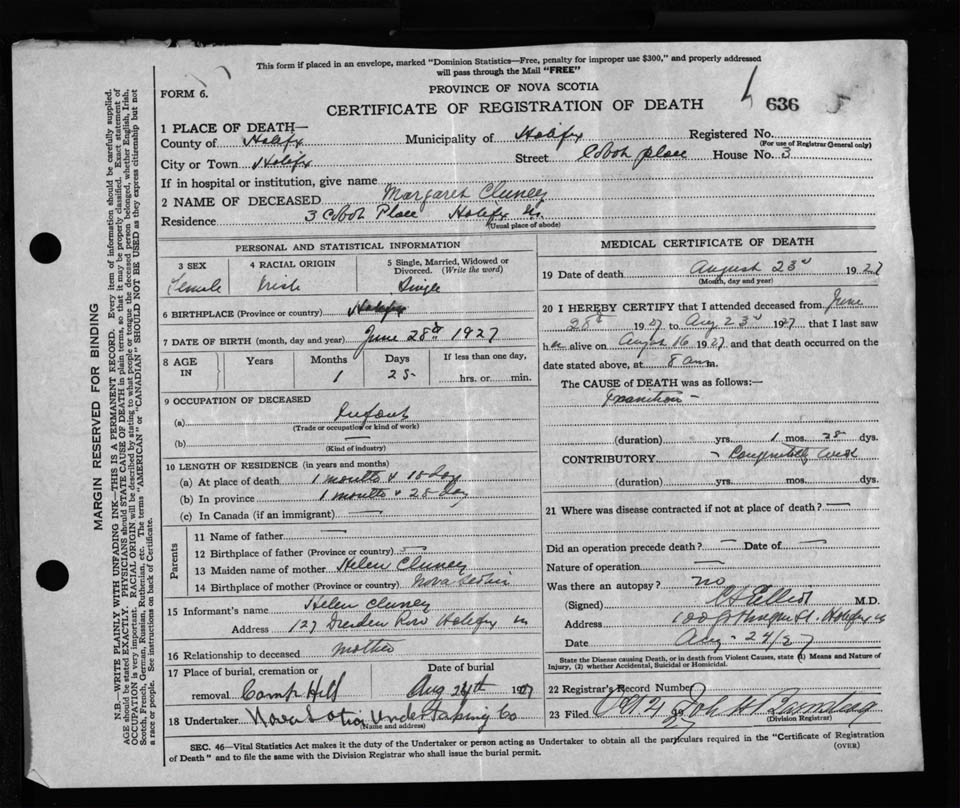 This form if placed in an envelope, marked "Dominion Statistics—Free, penalty for improper use $300," and properly addressed
will pass through the Mail "FREE"
FORM 6.
PROVINCE OF NOVA SCOTIA
CERTIFICATE OF REGISTRATION OF DEATH
636
1 PLACE OF DEATH—
County of Halifx Municipality of Halifx Registered No.
(For use of Registrar General only)
City or Town Halifx Street Place House No. 3
If in hospital or institution, give name
2 NAME OF DECEASED Margaret Cluney
Residence 3 Place Halifx
(Usual place of abode)
PERSONAL AND STATISTICAL INFORMATION
3 SEX
Female
4 RACIAL ORIGIN
Irish
5 Single, Married, Widowed or Divorced. (Write the word)
Single
6 BIRTHPLACE (Province or country) Halifx
7 DATE OF BIRTH (month, day and year) June 28th 1927
8 AGE IN Years Months Days If less than one day,
1 25 hrs. or min.
9 OCCUPATION OF DECEASED
(a) Infant
(Trade or occupation or kind of work)
(b) —
(Kind of industry)
10 LENGTH OF RESIDENCE (in years and months)
(a) At place of death 1 month + day
(b) In province 1 month + 25 day
(c) In Canada (if an immigrant) —
Parents
11 Name of father —
12 Birthplace of father (Province or country) —
13 Maiden name of mother Helen Cluney
14 Birthplace of mother (Province or country) Nova Scotia
15 Informant's name Helen Cluney
Address 127 Dresden Row Halifx
16 Relationship to deceased mother
17 Place of burial, cremation or Date of burial
removal Camp Hill Aug 24th 1927
18 Undertaker Nova Scotia Undertaking Co
(Name and address)
MEDICAL CERTIFICATE OF DEATH
19 Date of death August 23d 1927
(Month, day and year)
20 I HEREBY CERTIFY that I attended deceased from June
28th 1927 to Aug 23d 1927 that I last saw
h alive on August 16 1927 and that death occurred on the
date stated above, at 8 am.
The CAUSE of DEATH was as follows:—
(duration) yrs. 1 mos. dys.
CONTRIBUTORY
(duration) yrs. mos. dys.
21 Where was disease contracted if not at place of death? —
Did an operation precede death? — Date of —
Nature of operation —
Was there an autopsy? no
(Signed) Elliot M.D.
Address Halifx
Date Aug - 24/27
State the Disease causing Death, or in death from Violent Causes, state (1) Means and Nature of
Injury, (2) whether Accidental, Suicidal or Homicidal.
22 Registrar's Record Number
23 Filed Oct 4
(Division Registrar)
SEC. 46—Vital Statistics Act makes it the duty of the Undertaker or person acting as Undertaker to obtain all the particulars required in the "Certificate of Registration
of Death" and to file the same with the Division Registrar who shall issue the burial permit. (OVER)
MARGIN RESERVED FOR BINDING
N.B.—WRITE PLAINLY WITH UNFADING INK—THIS IS A PERMANENT RECORD. Every item of information should be carefully supplied.
AGE should be stated EXACTLY. PHYSICIANS should STATE CAUSE OF DEATH in plain terms, so that it may be properly classified. Exact statement of
OCCUPATION is very important. RACIAL ORIGIN will be described by stating to what people or tongue the deceased person belonged, whether English, Irish,
Scotch, French, German, Russian, Ruthenian, etc. The terms "AMERICAN" or "CANADIAN" SHOULD NOT BE USED as they express citizenship but not
a race or people. See instructions on back of Certificate.